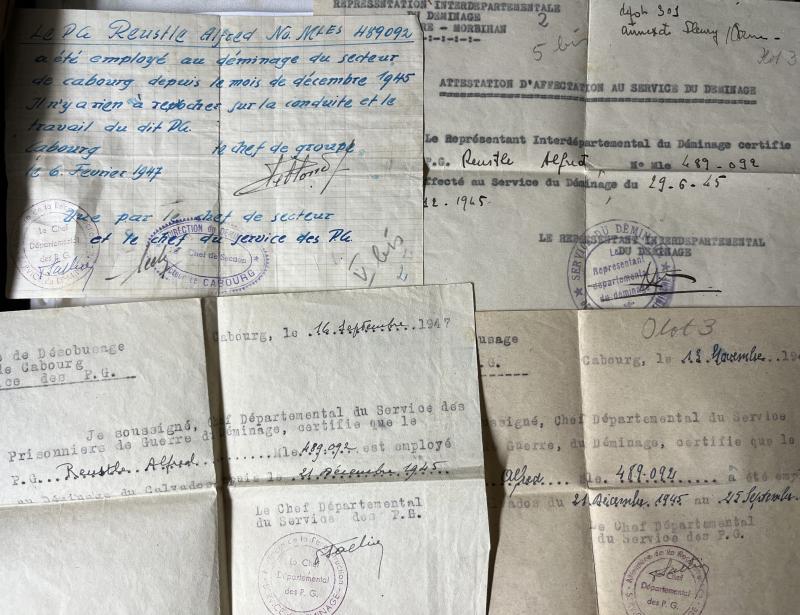 Le PG Reustle Alfred No. Mles 489092
a été employé au déminage du secteur
de cabourg depuis le mois de décembre 1945
Il n'y a rien à reprocher sur la conduite et le
travail du dit P.G.
Cabourg le chef de groupe
le 6. Février 1947
Vue par le chef de secteur
et le chef du service des P.G.
Le Chef
Départemental
des P. G.
DIRECTION DU DÉMINAGE
Chef de Section
CABOURG
V bis
REPRESENTATION INTERDEPARTEMENTALE
DEMINAGE
RE - MORBIHAN
2
5 bis
dépôt 301
annexe Fleury/Orne
Ilot 3
ATTESTATION D'AFFECTATION AU SERVICE DU DEMINAGE
Le Représentant Interdépartemental du Déminage certifie
P.G. Reustle Alfred N° Mle 489-092
ffecté au Service du Déminage du 29-6-45
12.1945.
LE REPRESENTANT INTERDEPARTEMENTAL
DU DEMINAGE
SERVICE DU DÉMINAGE
Le
Représentant
départemental
du déminage
e de Désobusage
de Cabourg
ice des P.G.
Cabourg, le 16 Septembre 1947
Je soussigné, Chef Départemental du Service des
Prisonniers de Guerre du Déminage, certifie que le
P.G... Reustle Alfred ......... Mle 489.092 est employé
au Déminage du Calvados depuis le 21 Décembre 1945
Le Chef Départemental
du Service des P.G.
Le Chef
Départemental
des P. G.
DÉMINAGE
Ilot 3
usage
.G.
Cabourg, le 13 Novembre 194
ssigné, Chef Départemental du Service
Guerre, du Déminage, certifie que le
Alfred ... Mle. 489.092 ..... a été emp
lvados du 21 Décembre 1945 au 25 Septembre
Le Chef Départemental
du Service des P.G.
Chef
Départemental
des P. G.